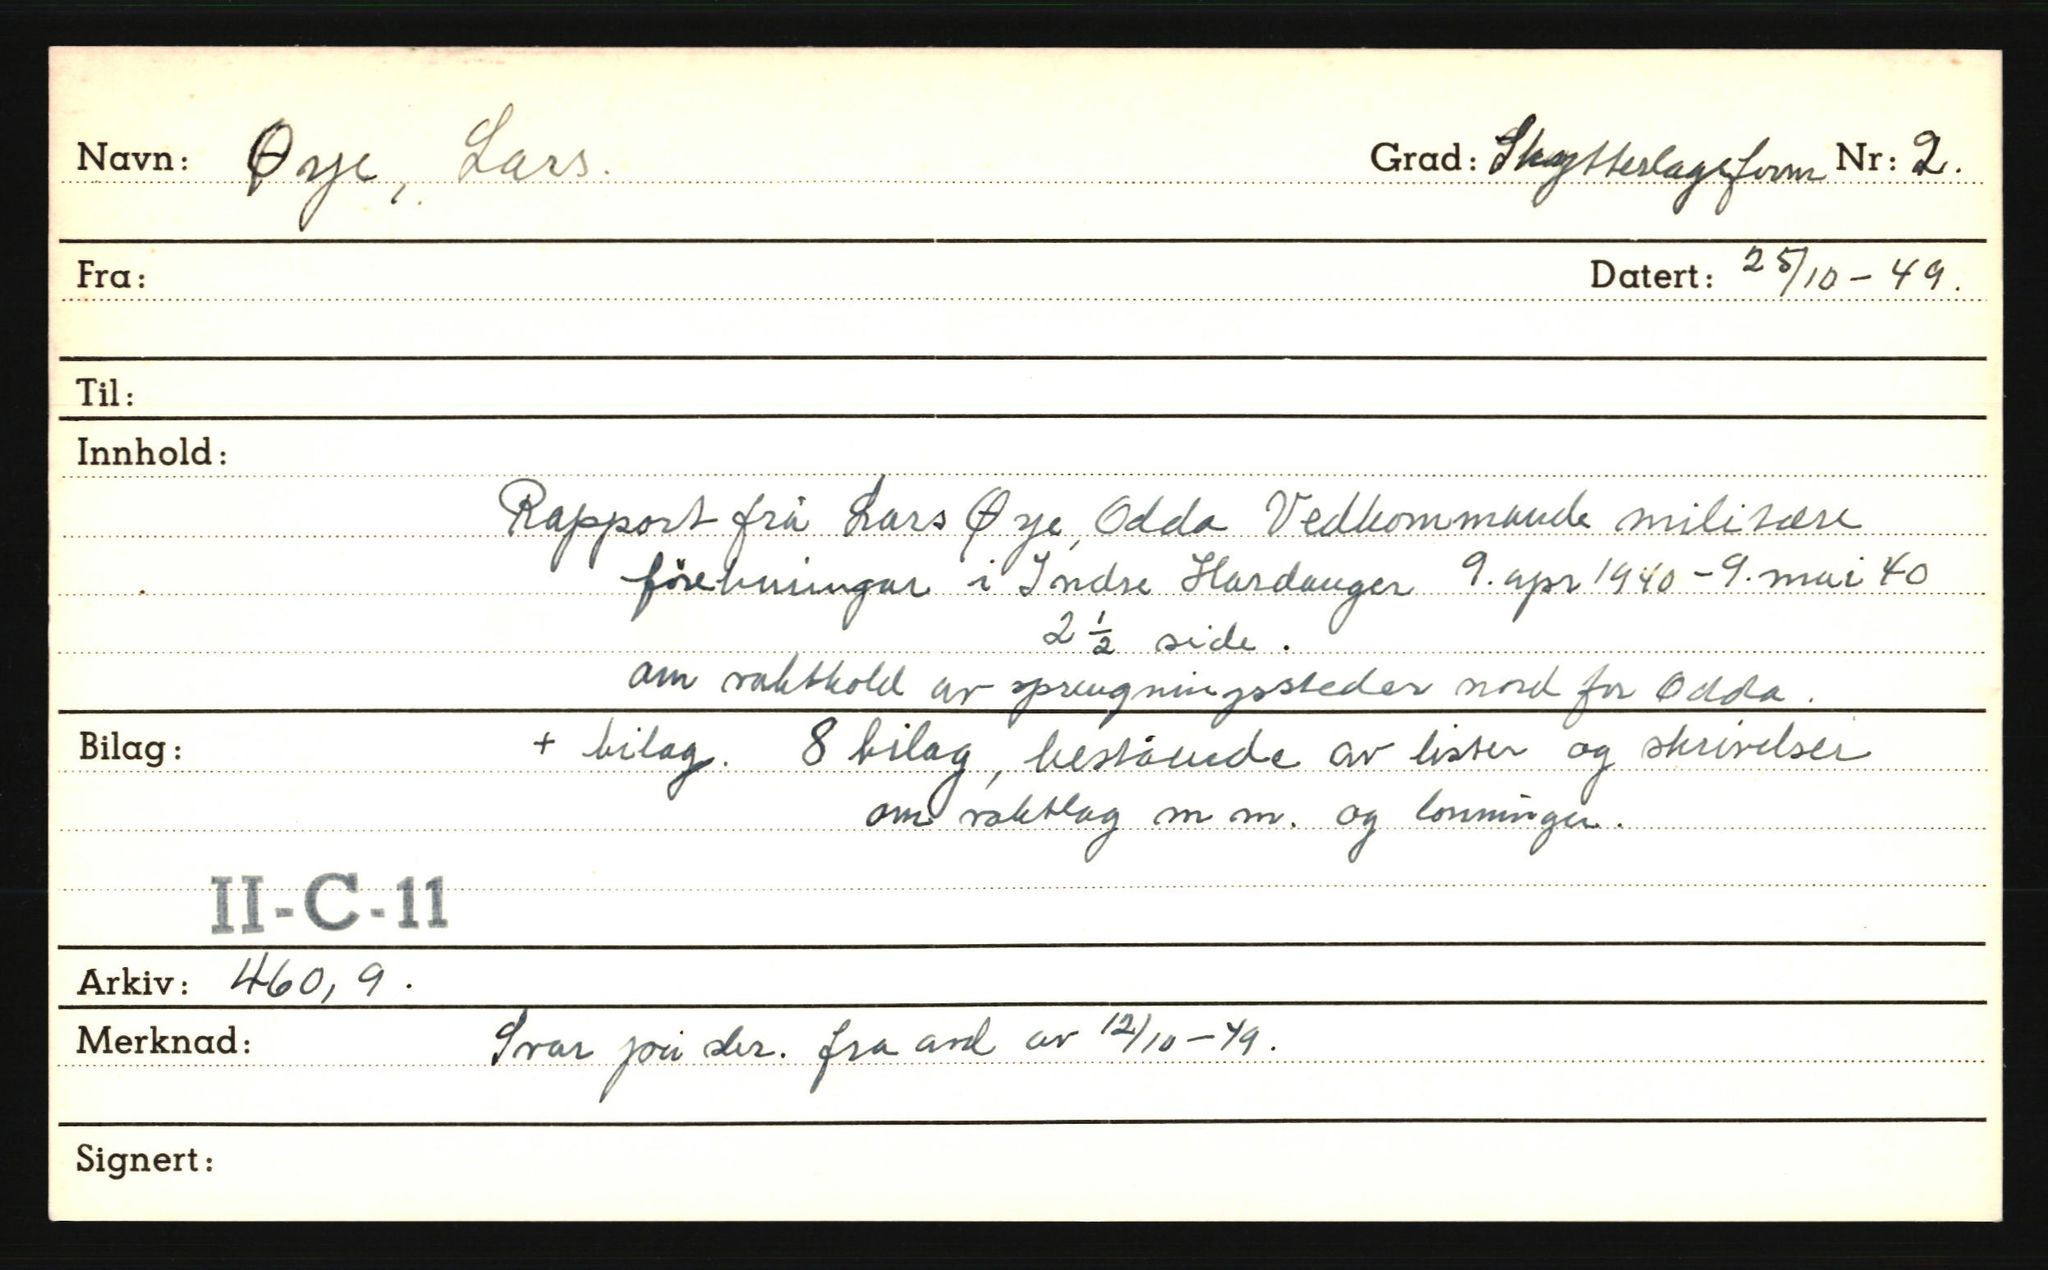 Navn: Øye, Lars. Grad: Skytterlagsform Nr: 2.
Fra: Datert: 25/10 - 49.
Til:
Innhold:
Rapport frå Lars Øye, Odda Vedkommande militære
förebuingar i Indre Hardanger 9. apr 1940 - 9. mai 40
2 1/2 side.
om vakthold av sprengningssteder nord for Odda.
Bilag: + bilag. 8 bilag, bestående av lister og skrivelser
om vaktlag m m. og lønninger.
II-C-11
Arkiv: 460,9.
Merknad: Svar på skr. fra avd av 12/10 - 49.
Signert: